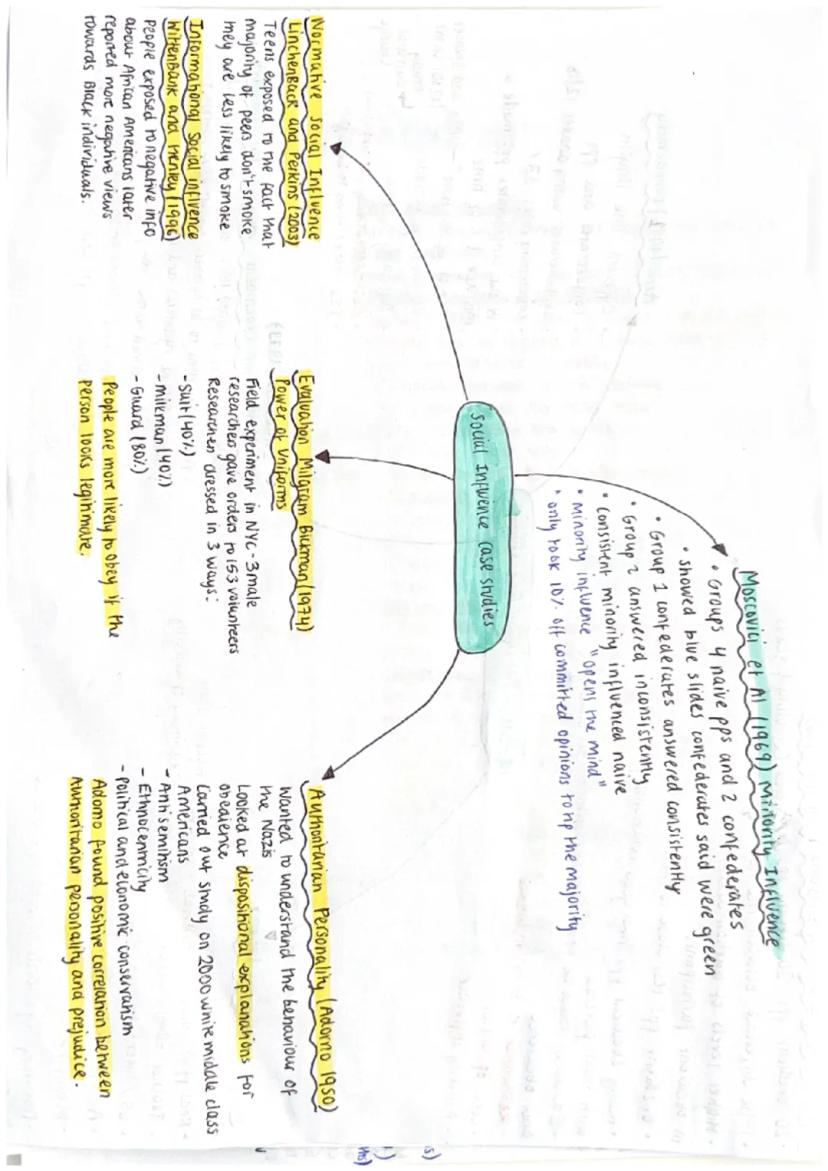 Social Influence case studies
Moscovici et Al (1969) Minority Influence
• Groups 4 naive pps and 2 confederates
• showed blue slides confederates said were green
• Group 1 confederates answered consistently
• Group 2 answered inconsistently
• Consistent minority influenced naive
• Minority influence "opens the mind"
• only took 10% off committed opinions to tip the majority
Normative Social Influence
Linchenback and Perkins (2003)
Teens exposed to the fact that
majority of peers don't smoke
they are less likely to smoke
Informational Social Influence
Wittenbank and Henley (1996)
People exposed to negative info
about African Americans later
reported more negative views
towards Black individuals.
Evaluation Milgram Bickman (1974)
Power of Uniforms
Field experiment in NYC - 3 male
researchers gave orders to 153 volunteers
Researchers dressed in 3 ways:
- Suit (40%)
- milkman (40%)
- Guard (80%)
People are more likely to obey if the
person looks legitimate.
Authoritarian Personality (Adorno 1950)
Wanted to understand the behaviour of
the Nazis
Looked at dispositional explanations for
obedience
Carried out study on 2000 white middle class
Americans
- Antisemitism
- Ethnocentricity
- Political and economic conservatism
Adorno found positive correlation between
Authoritarian personality and prejudice.